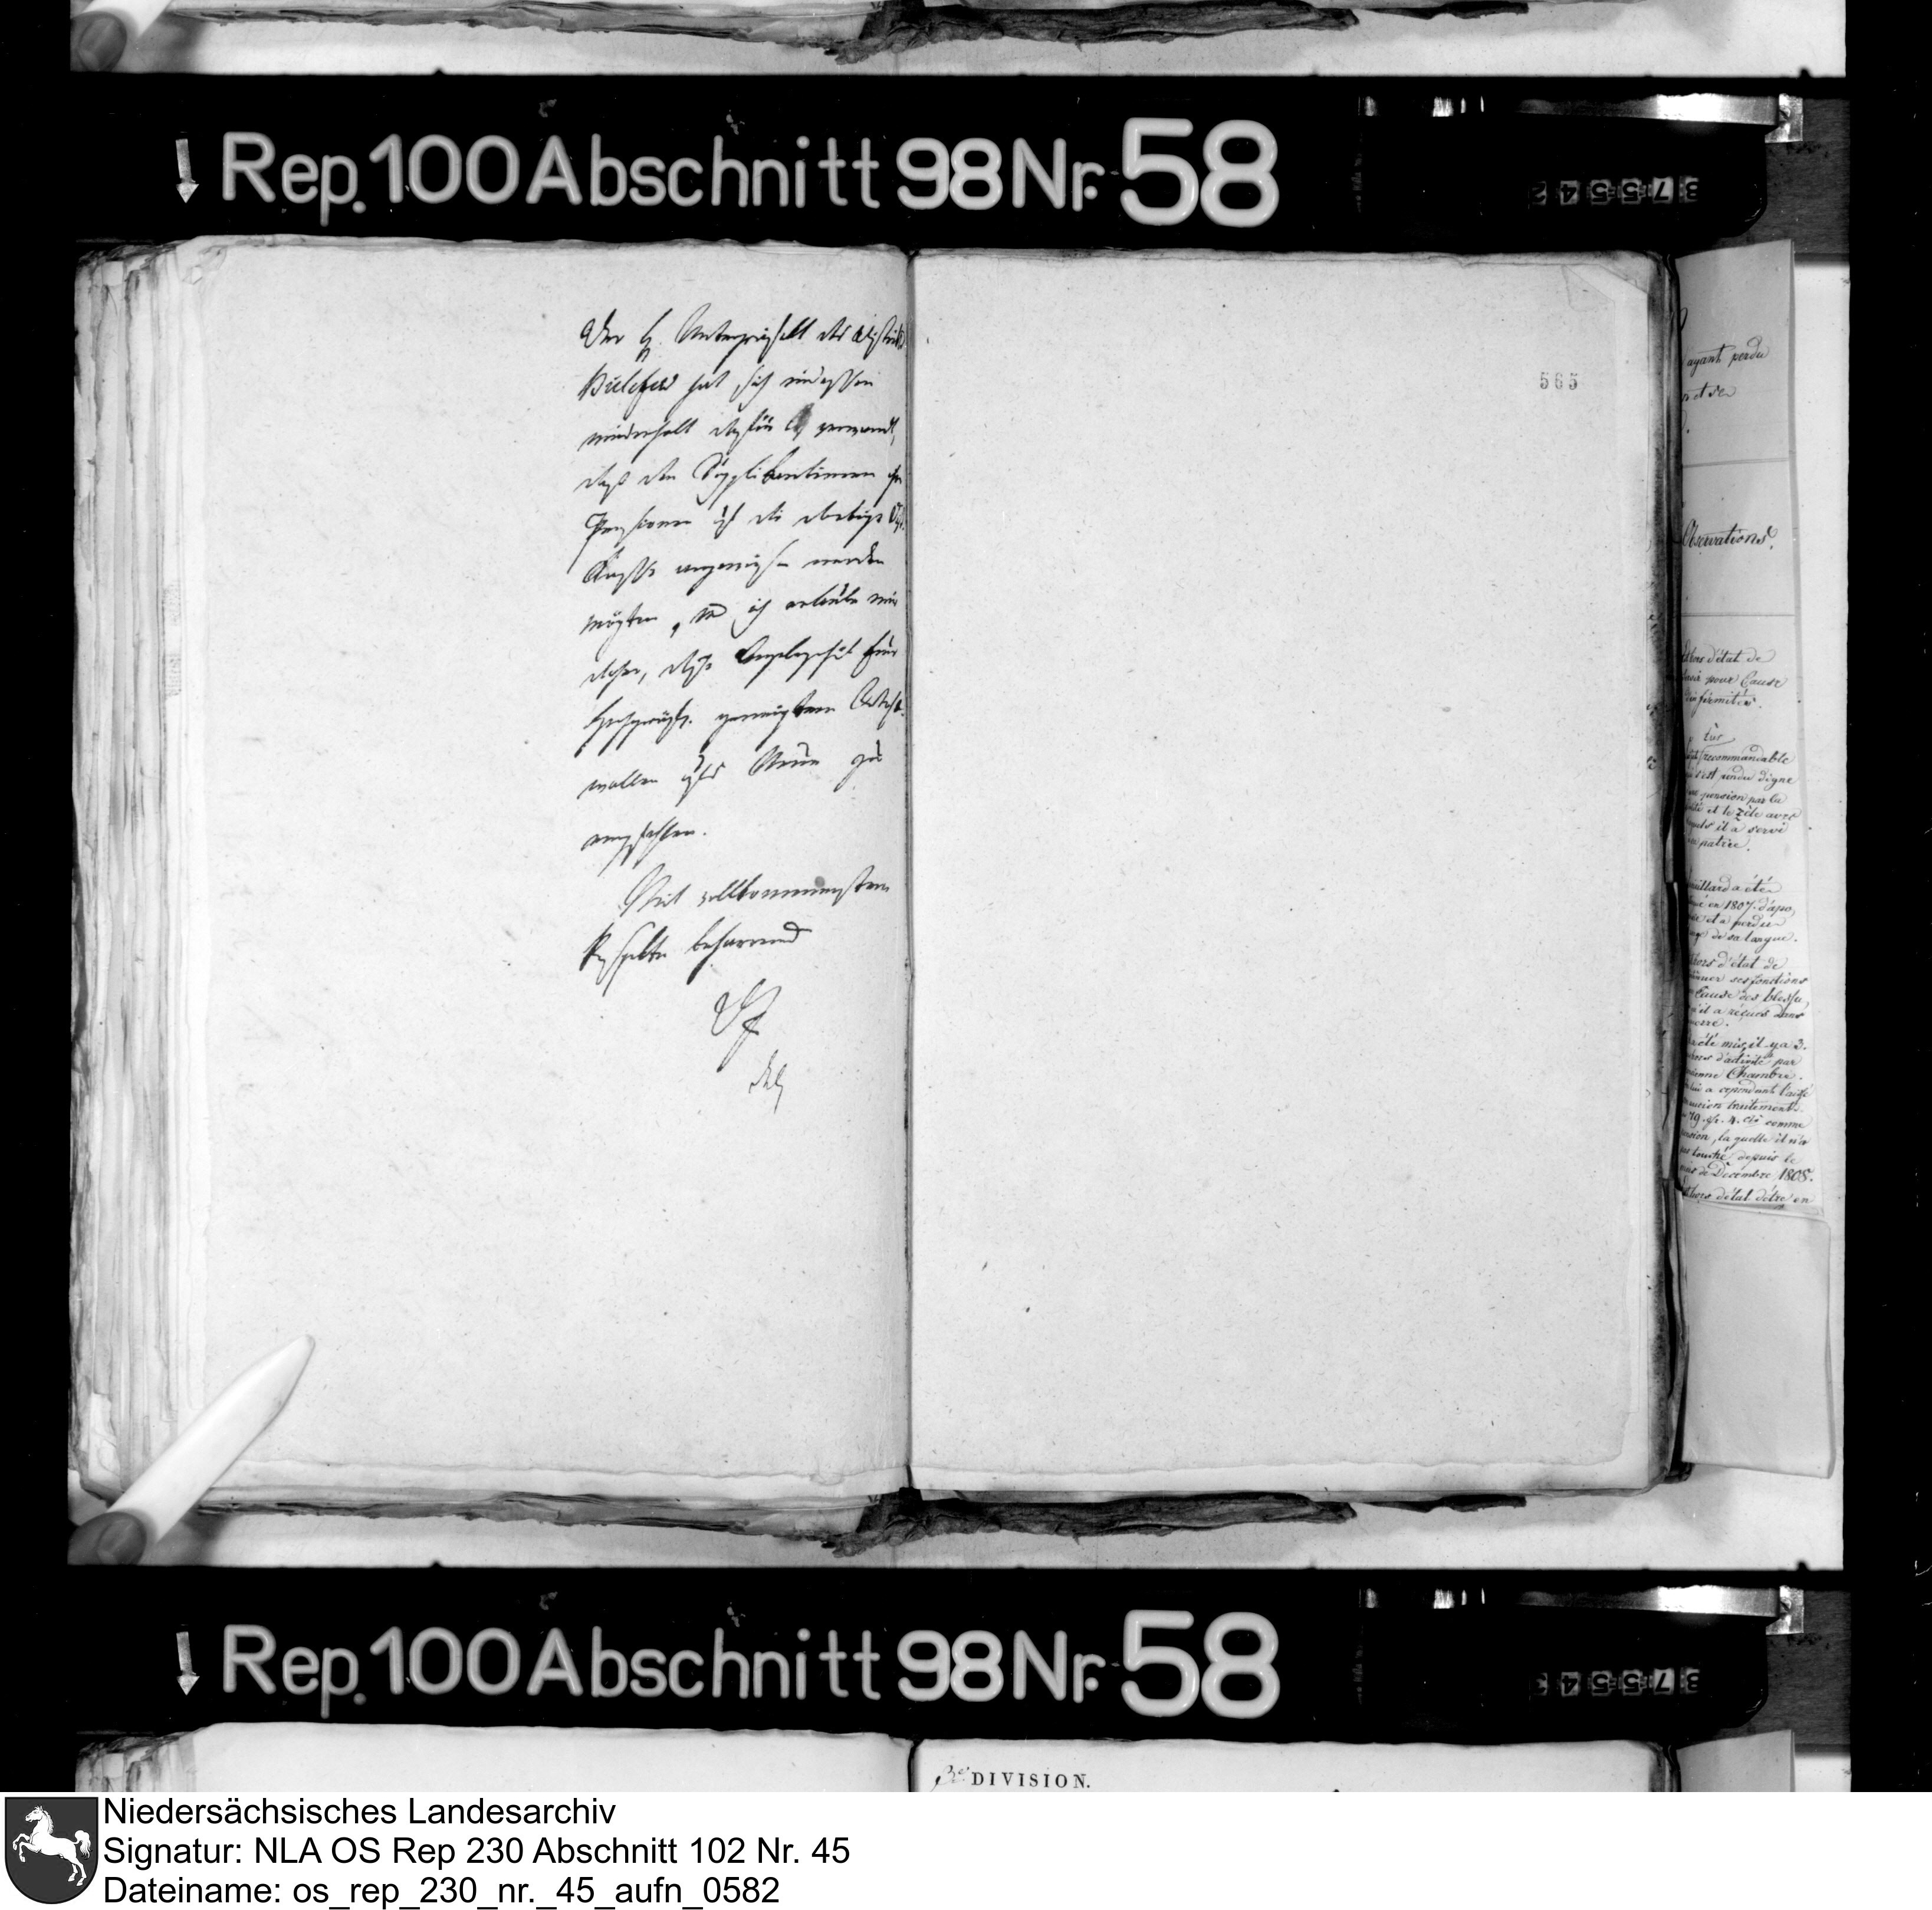 Rep. 100 Abschnitt 98 Nr. 58
375542
Der H. Unterpräfekt des Distrikts
Bielefeld hat sich indessen
wiederholt dafür verwendet,
daß den Supplikantinnen
Pensionen auf die dortige
Kasse angewiesen werden
mögten, und ich erlaube mir
daher, diese Angelegenheit Euer
geneigtem
wollen aufs Neue zu
empfehlen.
Mit vollkommenstem
Respekte beharrend
565
ayant perdu
Observations.
hors d'état de
pour Cause
infirmités.
recommandable
s'est rendu digne
pension par la
et le zèle avec
il a servi
patrie.
a été
en 1807. d'apo,
et a perdu
de sa langue.
hors d'état de
ses fonctions
Cause des blessu,
qu'il a reçues dans
été mis, il y a 3.
hors d'activité par
Chambre.
a cependant laissé
traitement
comme
pension, la quelle il n'a
touché depuis le
mois de Decembre 1808.
hors d'état d'être en
Rep. 100 Abschnitt 98 Nr. 58
375543
3e DIVISION.
Niedersächsisches Landesarchiv
Signatur: NLA OS Rep 230 Abschnitt 102 Nr. 45
Dateiname: os_rep_230_nr._45_aufn_0582